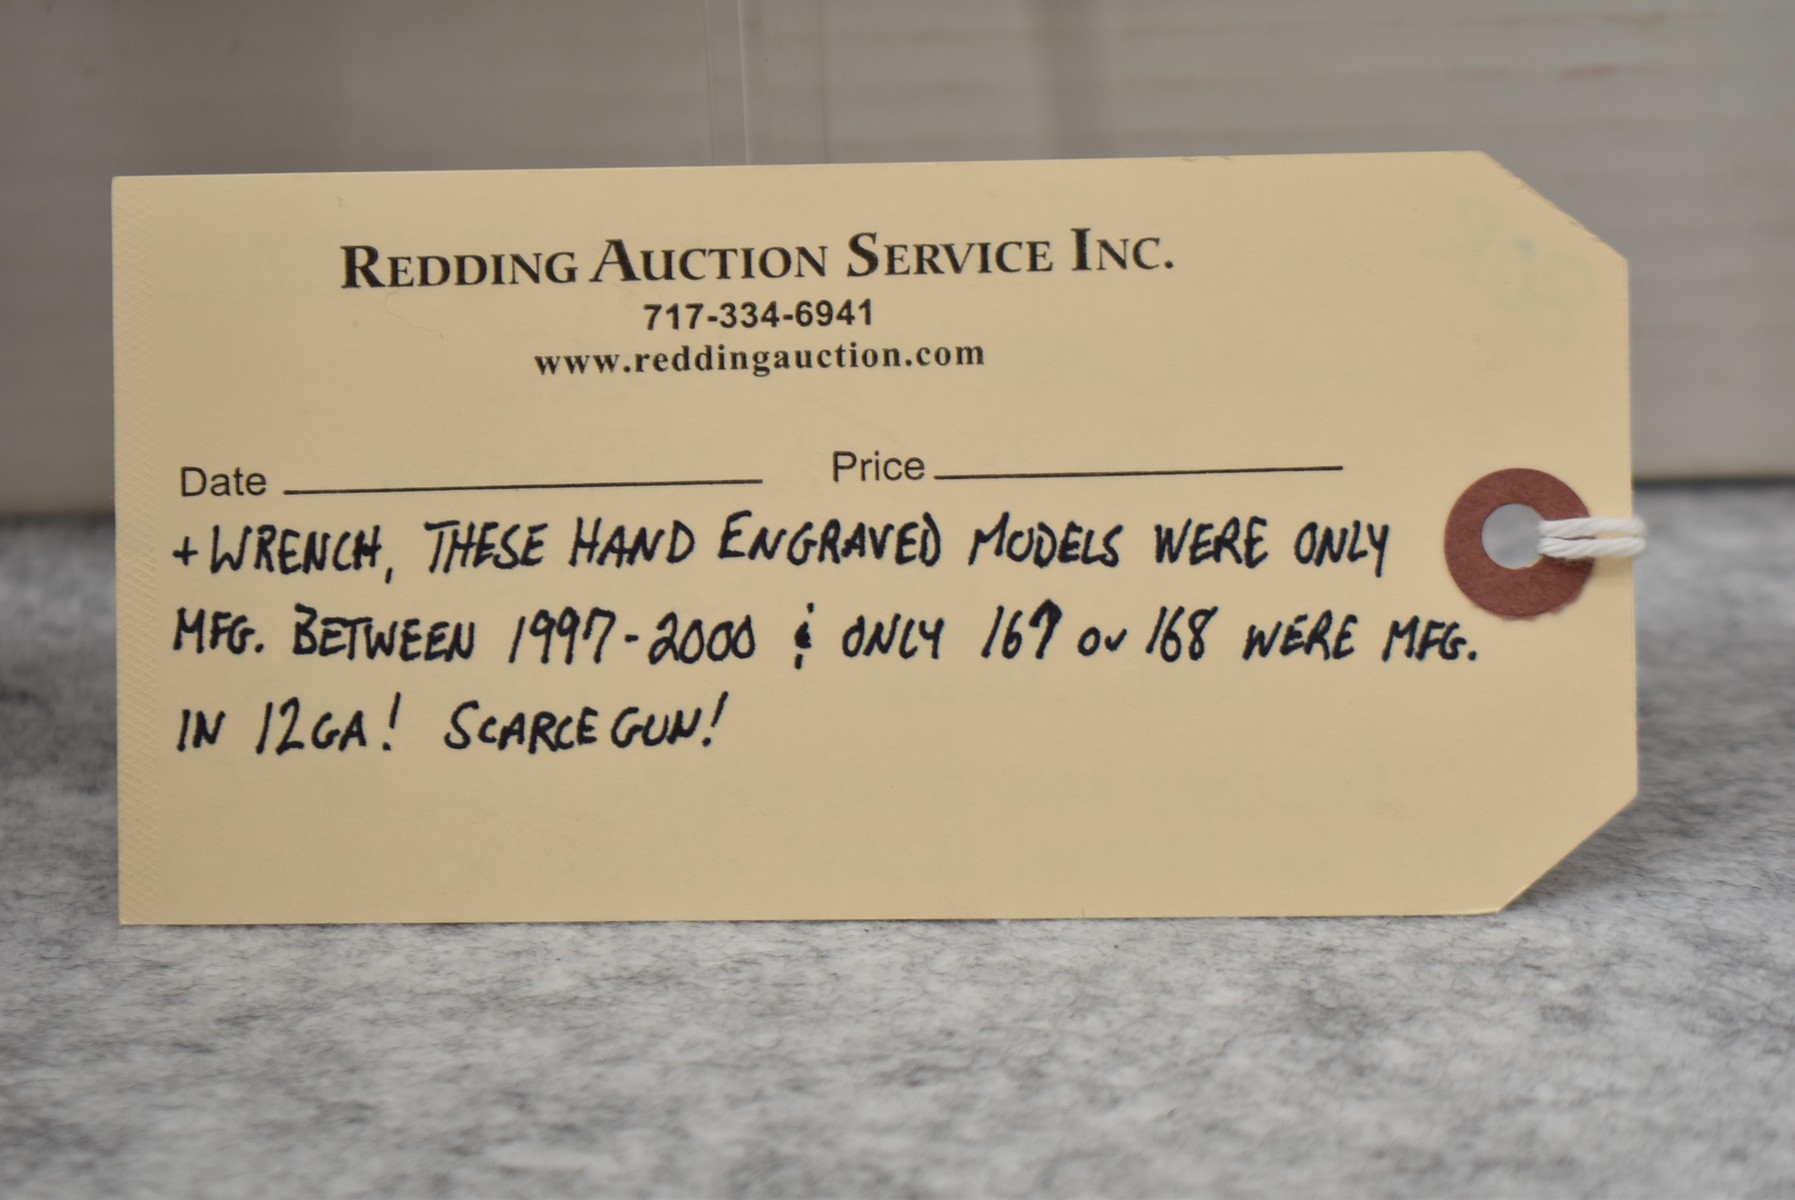 REDDING AUCTION SERVICE INC.
717-334-6941
www.reddingauction.com
Date Price
+ WRENCH, THESE HAND ENGRAVED MODELS WERE ONLY
MFG. BETWEEN 1997-2000 & ONLY 167 or 168 WERE MFG.
IN 12GA! SCARCE GUN!